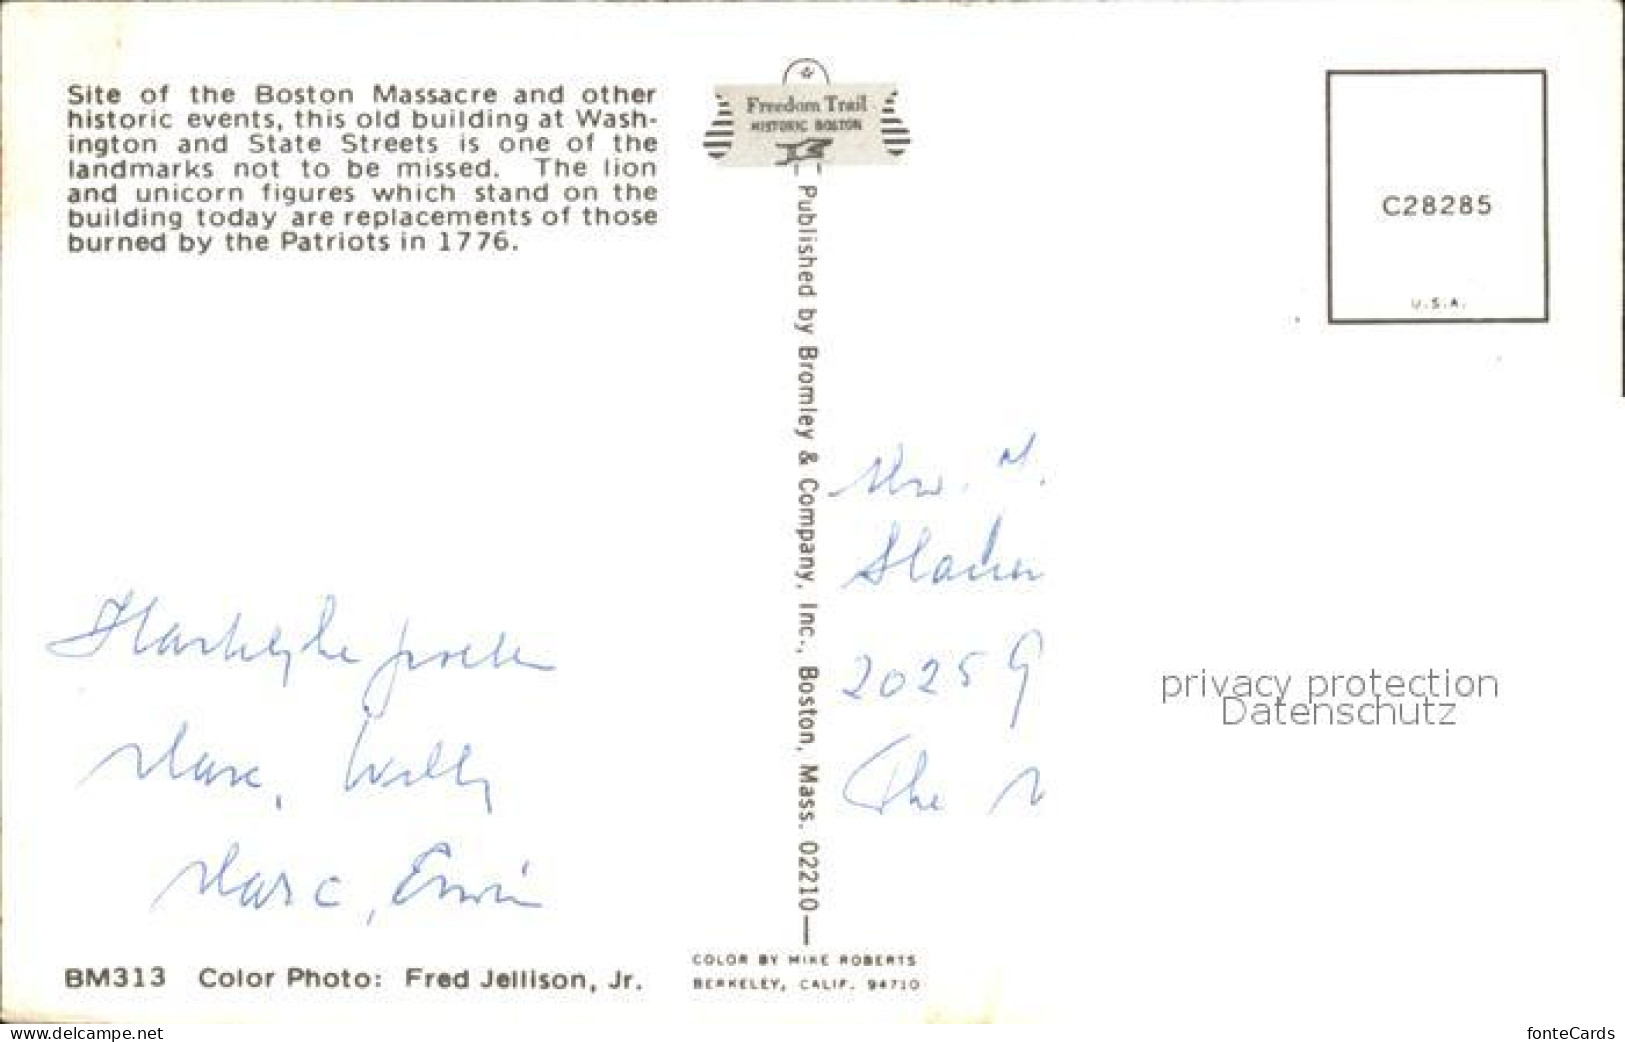 Site of the Boston Massacre and other
historic events, this old building at Wash-
ington and State Streets is one of the
landmarks not to be missed. The lion
and unicorn figures which stand on the
building today are replacements of those
burned by the Patriots in 1776.
Freedom Trail
HISTORIC BOSTON
Published by Bromley & Company, Inc., Boston, Mass. 02210
C28285
U.S.A.
Hartelijke groeten
Willy
Marc, Erwin
2025 G
The
privacy protection
Datenschutz
BM313 Color Photo: Fred Jellison, Jr.
COLOR BY MIKE ROBERTS
BERKELEY, CALIF. 94710
www.delcampe.net
fonteCards